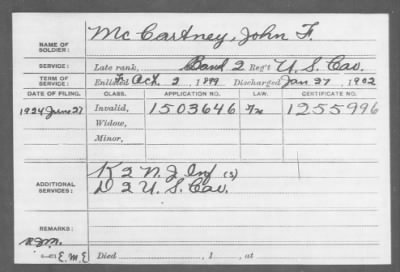 NAME OF SOLDIER: McCartney, John F.
SERVICE: Late rank, Band 2 Reg't U.S. Cav.
TERM OF SERVICE: Enlisted Oct. 2, 1899 Discharged Jan 27, 1902
DATE OF FILING. CLASS. APPLICATION NO. LAW. CERTIFICATE NO.
1924 June 27 Invalid, 1503646 1255996
Widow,
Minor,
ADDITIONAL SERVICES: K 2 N.J. Inf (S)
D 2 U.S. Cav.
REMARKS:
E.M.E Died , 1 , at